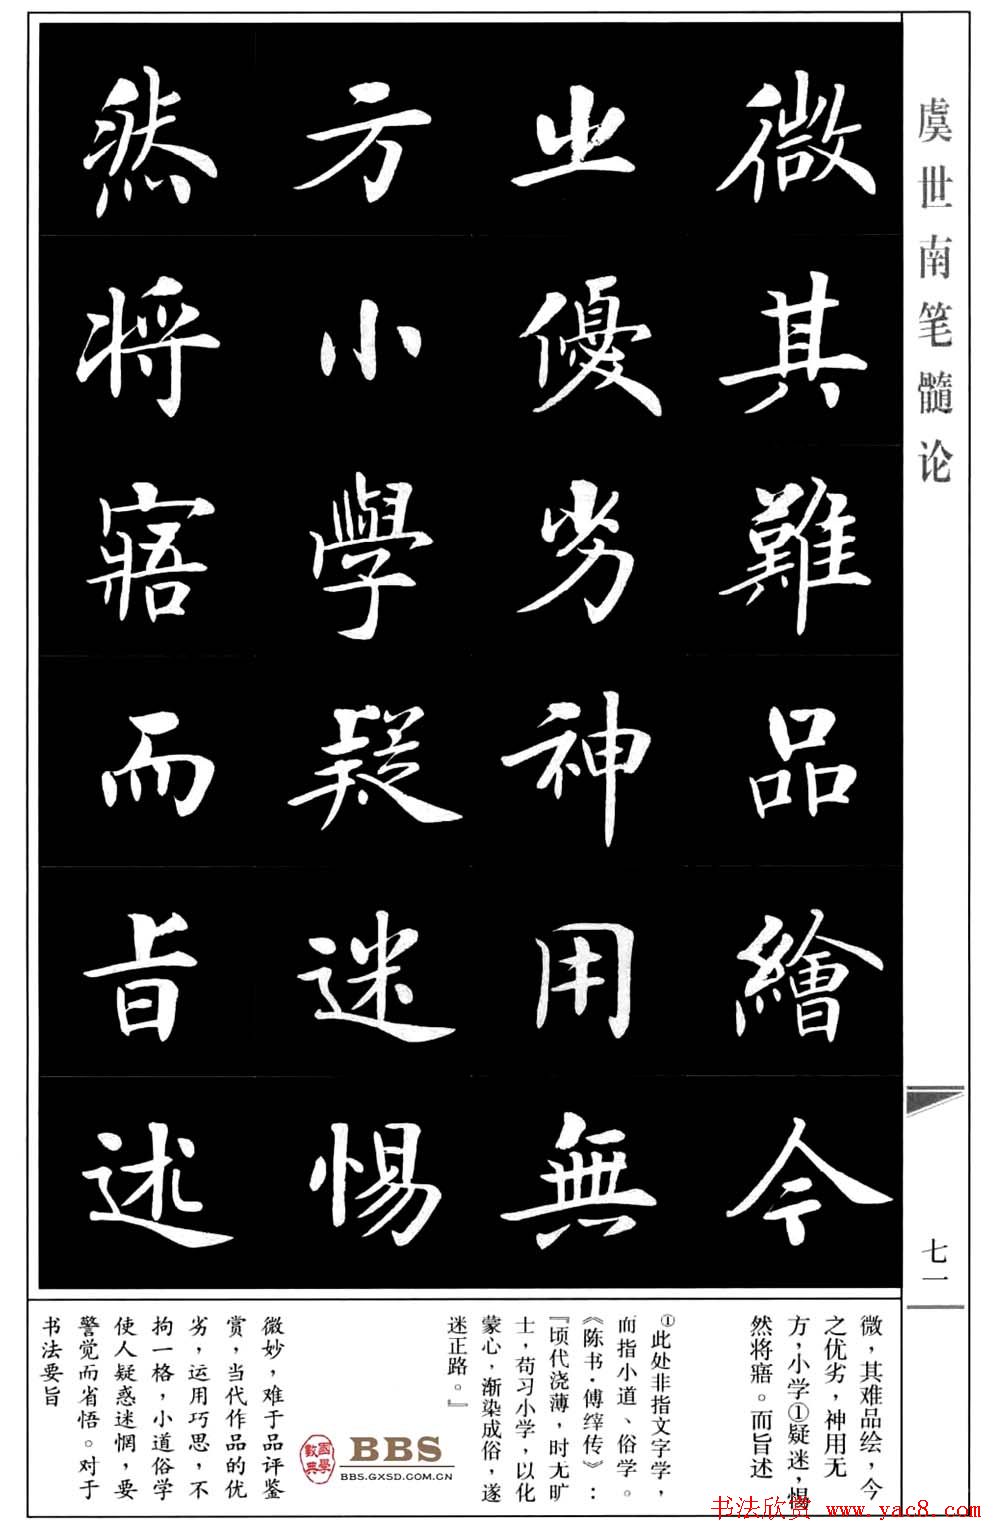 虞世南笔髓论
微其難品繪今
之優劣神用無
方小學疑迷惕
然將寤而旨述
七一
微，其难品绘，今
之优劣，神用无
方，小学①疑迷，惕
然将寤。而旨述
①此处非指文字学，
而指小道、俗学。
《陈书·傅縡传》：
『顷代浇薄，时无旷
士，苟习小学，以化
蒙心，渐染成俗，遂
迷正路。』
微妙，难于品评鉴
赏，当代作品的优
劣，运用巧思，不
拘一格，小道俗学
使人疑惑迷惘，要
警觉而省悟。对于
书法要旨
國學數典
BBS
BBS.GXSD.COM.CN
书法欣赏 www.yac8.com